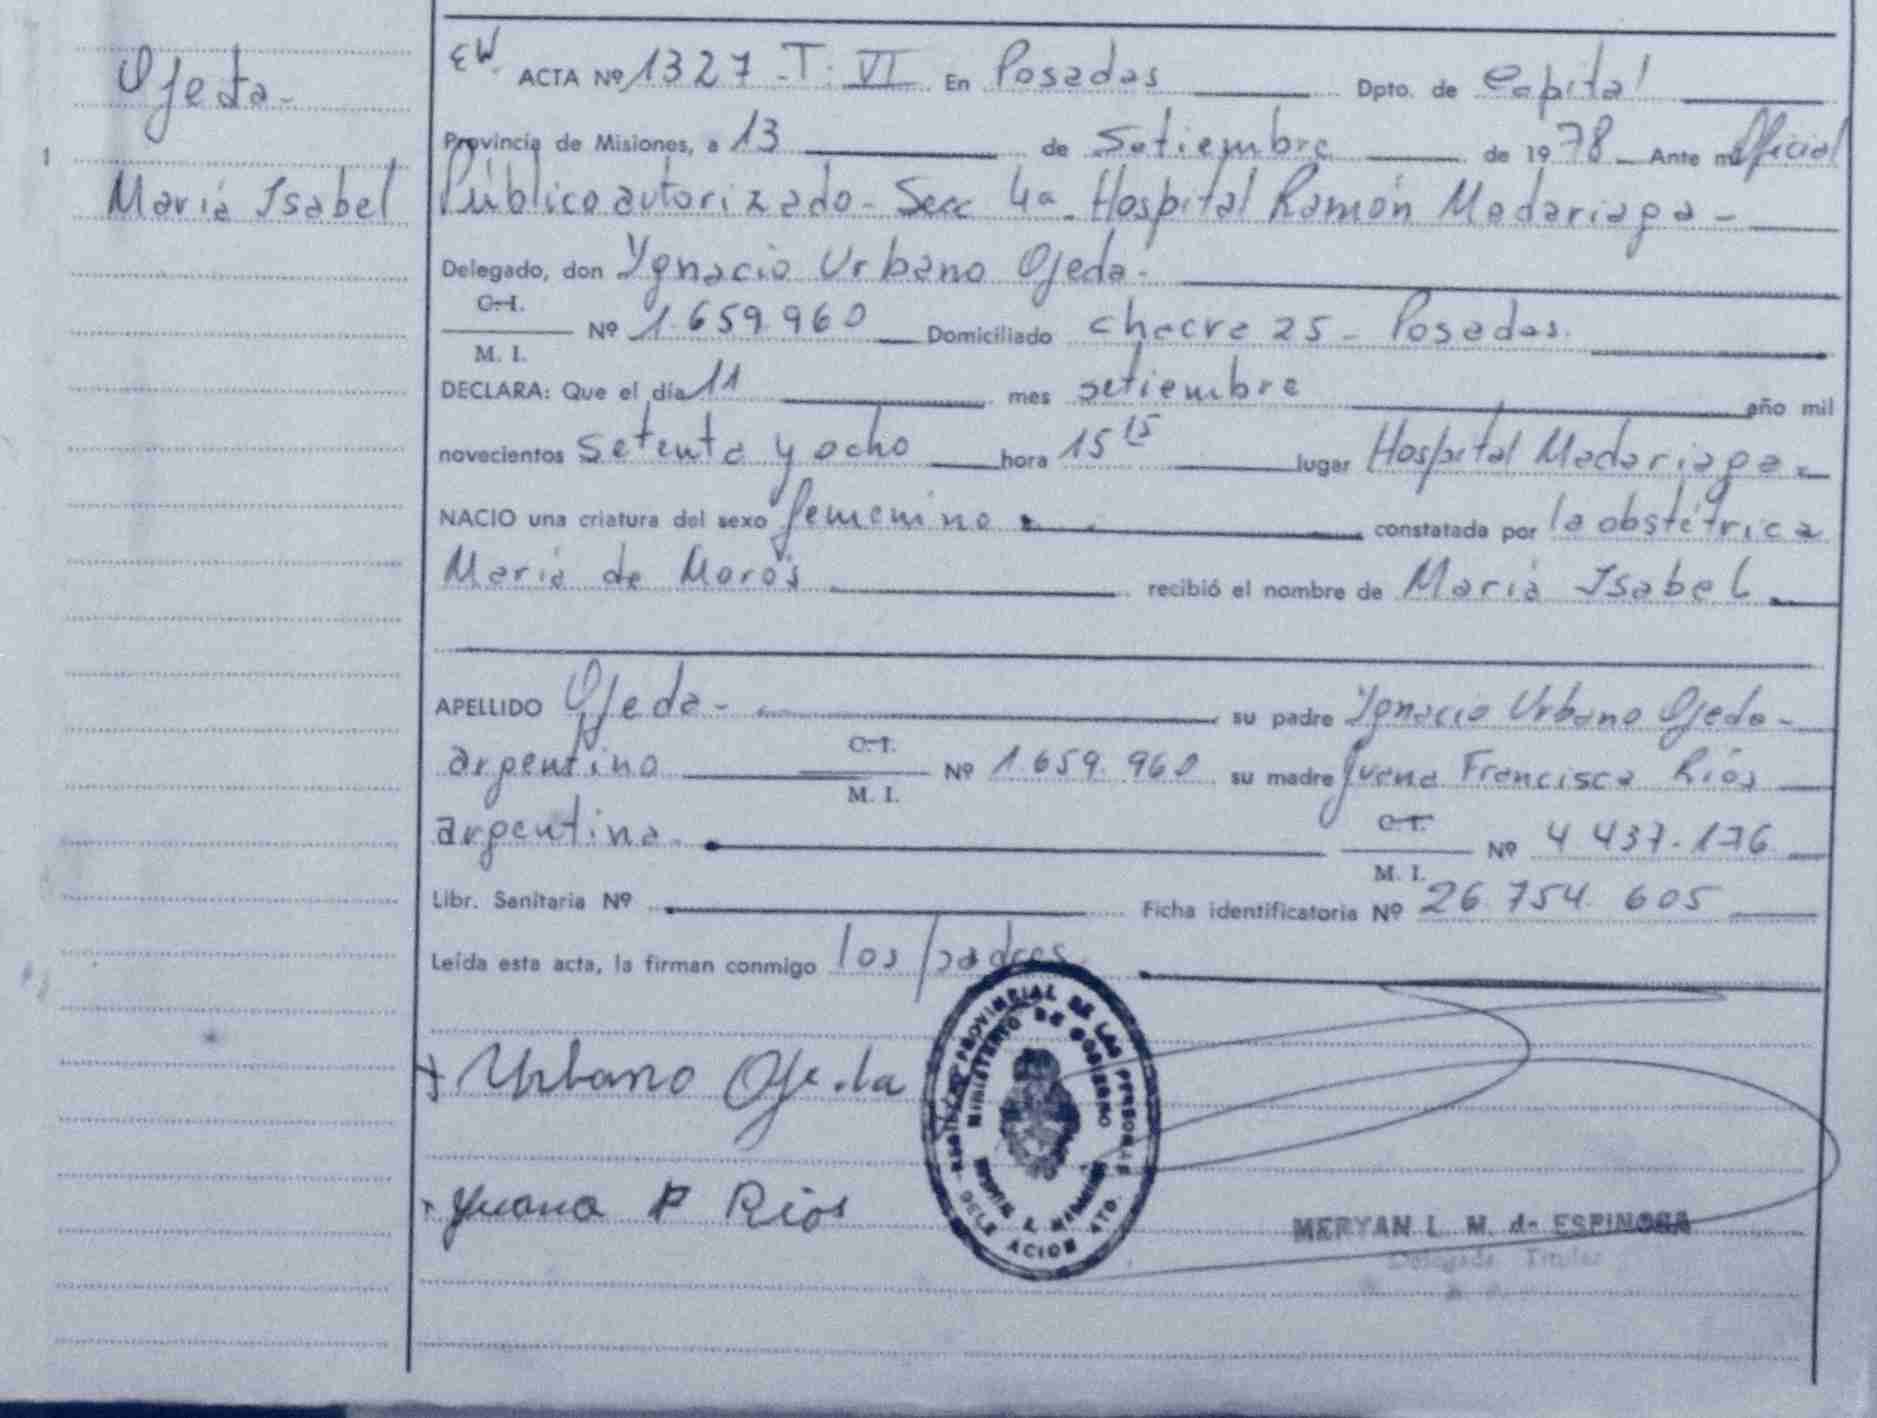 Ojeda-
María Isabel
EW. ACTA Nº 1327 -T- VI En Posadas Dpto. de Capital
Provincia de Misiones, a 13 de Setiembre de 1978 Ante mí Oficial
Público autorizado - Secc 4a - Hospital Ramón Madariaga -
Delegado, don Ygnacio Urbano Ojeda -
C. I.
Nº 1.659.960 Domiciliado chacra 25 - Posadas.
M. I.
DECLARA: Que el día 11 mes setiembre año mil
novecientos setenta y ocho hora 15 15 lugar Hospital Madariaga -
NACIO una criatura del sexo femenino constatada por la obstétrica
María de Moros recibió el nombre de María Isabel
APELLIDO Ojeda - su padre Ygnacio Urbano Ojeda -
argentino C. I. Nº 1.659.960 su madre Juana Francisca Ríos
M. I.
argentina - C. I. Nº 4.437.176
M. I.
Libr. Sanitaria Nº Ficha identificatoria Nº 26.754.605
Leída esta acta, la firman conmigo los padres
Urbano Ojeda
Juana F Rios
PROVINCIAL DE LAS PERSONAS
MINISTERIO DE GOBIERNO
MERYAN L. M. de ESPINOSA
Delegada Titular